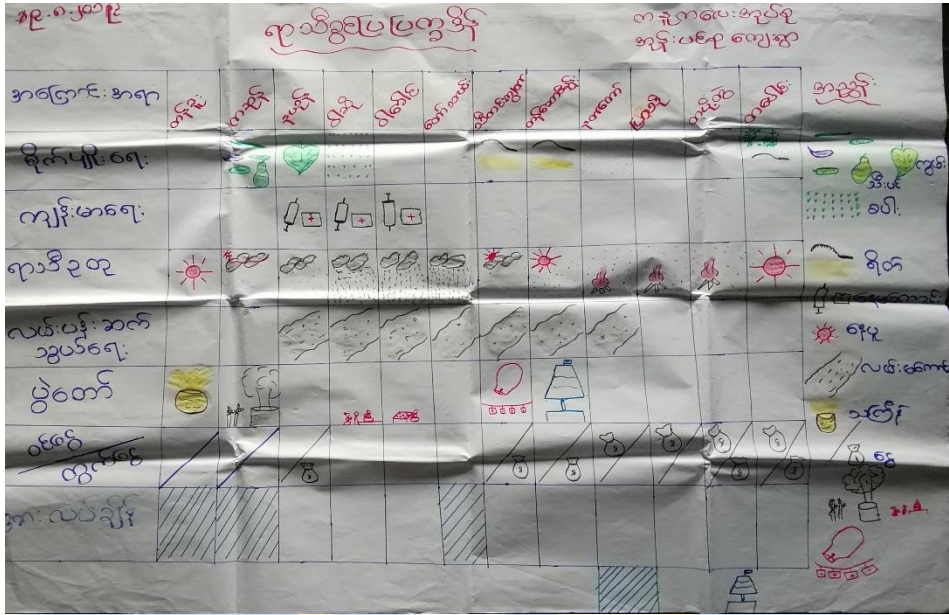 ၁၉.၈.၂၀၁၉
ရာသီခွင်ပြပြက္ခဒိန်
ကနက္ကပေးအုပ်စု
အုန်းပင်စု ကျေးရွာ
အကြောင်းအရာ တန်ခူး ကဆုန် နယုန် ဝါဆို ဝါခေါင် တော်သလင်း သီတင်းကျွတ် တန်ဆောင်မုန်း နတ်တော် ပြာသို တပို့တွဲ တပေါင်း အညွှန်း
စိုက်ပျိုးရေး
ကွမ်း
သီးပင်
စပါး
ကျန်းမာရေး
ရာသီဥတု
ရိတ်
နေမကောင်း
လမ်းပန်းဆက်
သွယ်ရေး
နေပူ
လမ်းမကောင်း
ပွဲတော်
သင်္ကြန်
ဝင်ငွေ
ထွက်ငွေ
ငွေ
အားလပ်ချိန်